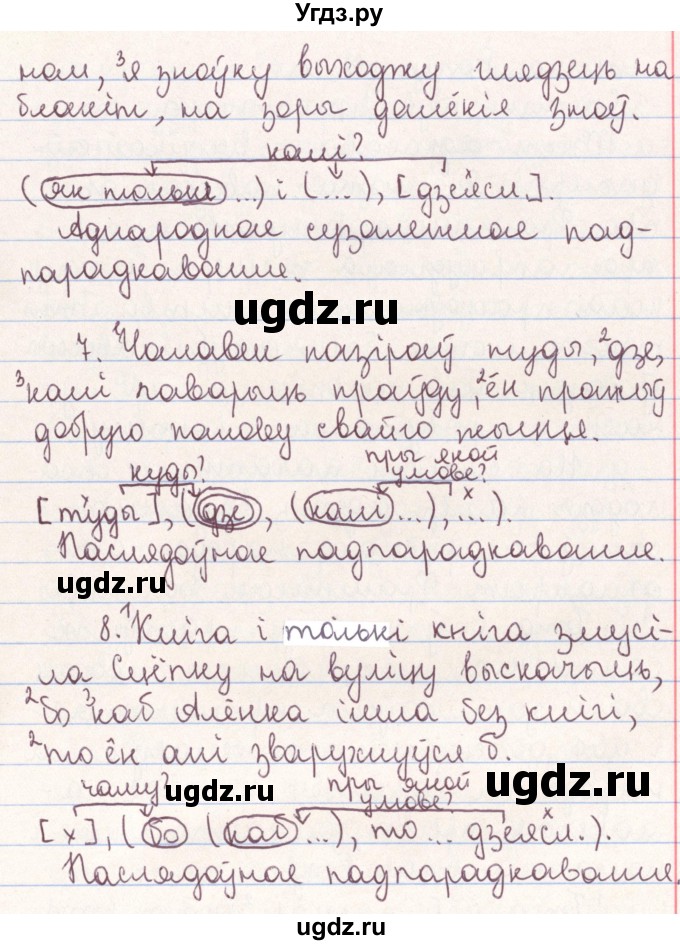 Угдз.ру
ном, ³я зноўку выходжу глядзець на
блакіт, на зоры далёкія зноў.
калі?
(як толькі ...) і (...), [дзеясл].
Аднароднае сузалежнае пад-
парадкаванне.
ugdz.ru
7. ¹Чалавек пазіраў туды, ²дзе,
³калі паварыць праўду, ²ён пражыў
добрую палову свайго жыцця.
куды? пры якой
умове?
[туды], (дзе, (калі ...), ˣ...).
Паслядоўнае падпарадкаванне.
ugdz.ru
8. ¹Кніга і толькі кніга змусі-
ла Сцёпку на вуліцу выскачыць,
²бо ³каб Алёнка ішла без кнігі,
²то ён ані зварухнуўся б.
чаму? ugdz.ru пры якой
умове? ugdz.ru
[х], (бо (каб ...), то ... дзеясл.).
Паслядоўнае падпарадкаванне.
ugdz.ru